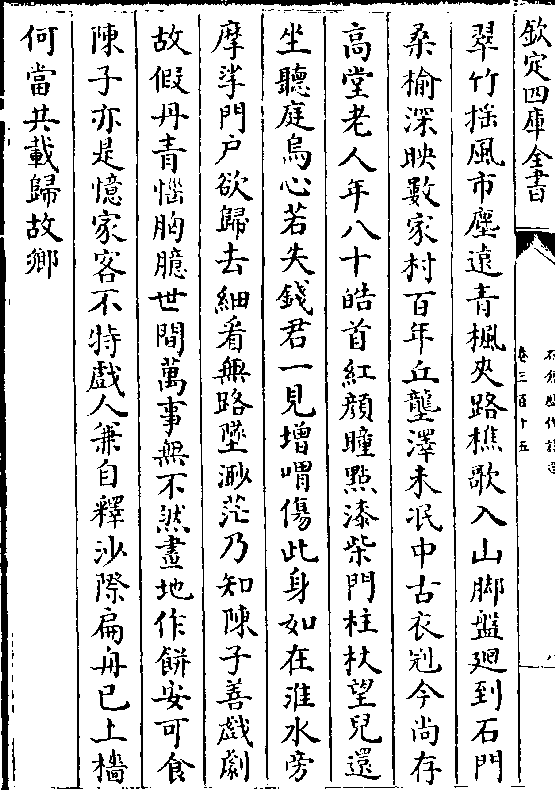 欽定四庫全書
卷三百十五
翠竹揺風市塵遠青楓夾路樵歌入山脚盤廻到石門
桑榆深映數家村百年丘壟澤未泯中古衣冠今尚存
高堂老人年八十皓首紅顔瞳點漆柴門柱杖望兒還
坐聽庭烏心若失錢君一見增喟傷此身如在淮水旁
摩挲門户欲歸去細看無路墜渺茫乃知陳子善戲劇
故假丹青惱胸臆世間萬事無不然畫地作餅安可食
陳子亦是憶家客不特戲人兼自釋沙際扁舟已上檣
何當共載歸故鄉